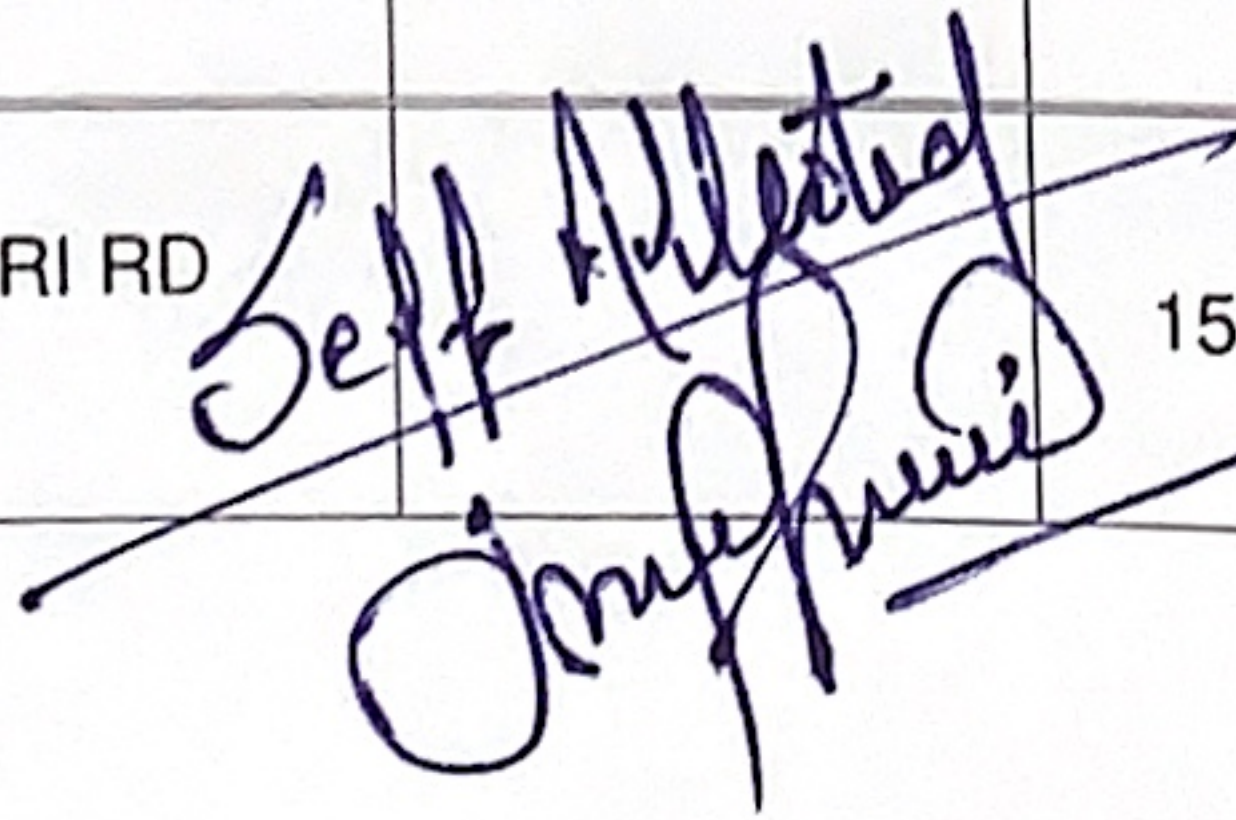 RI RD
Self Attested
15